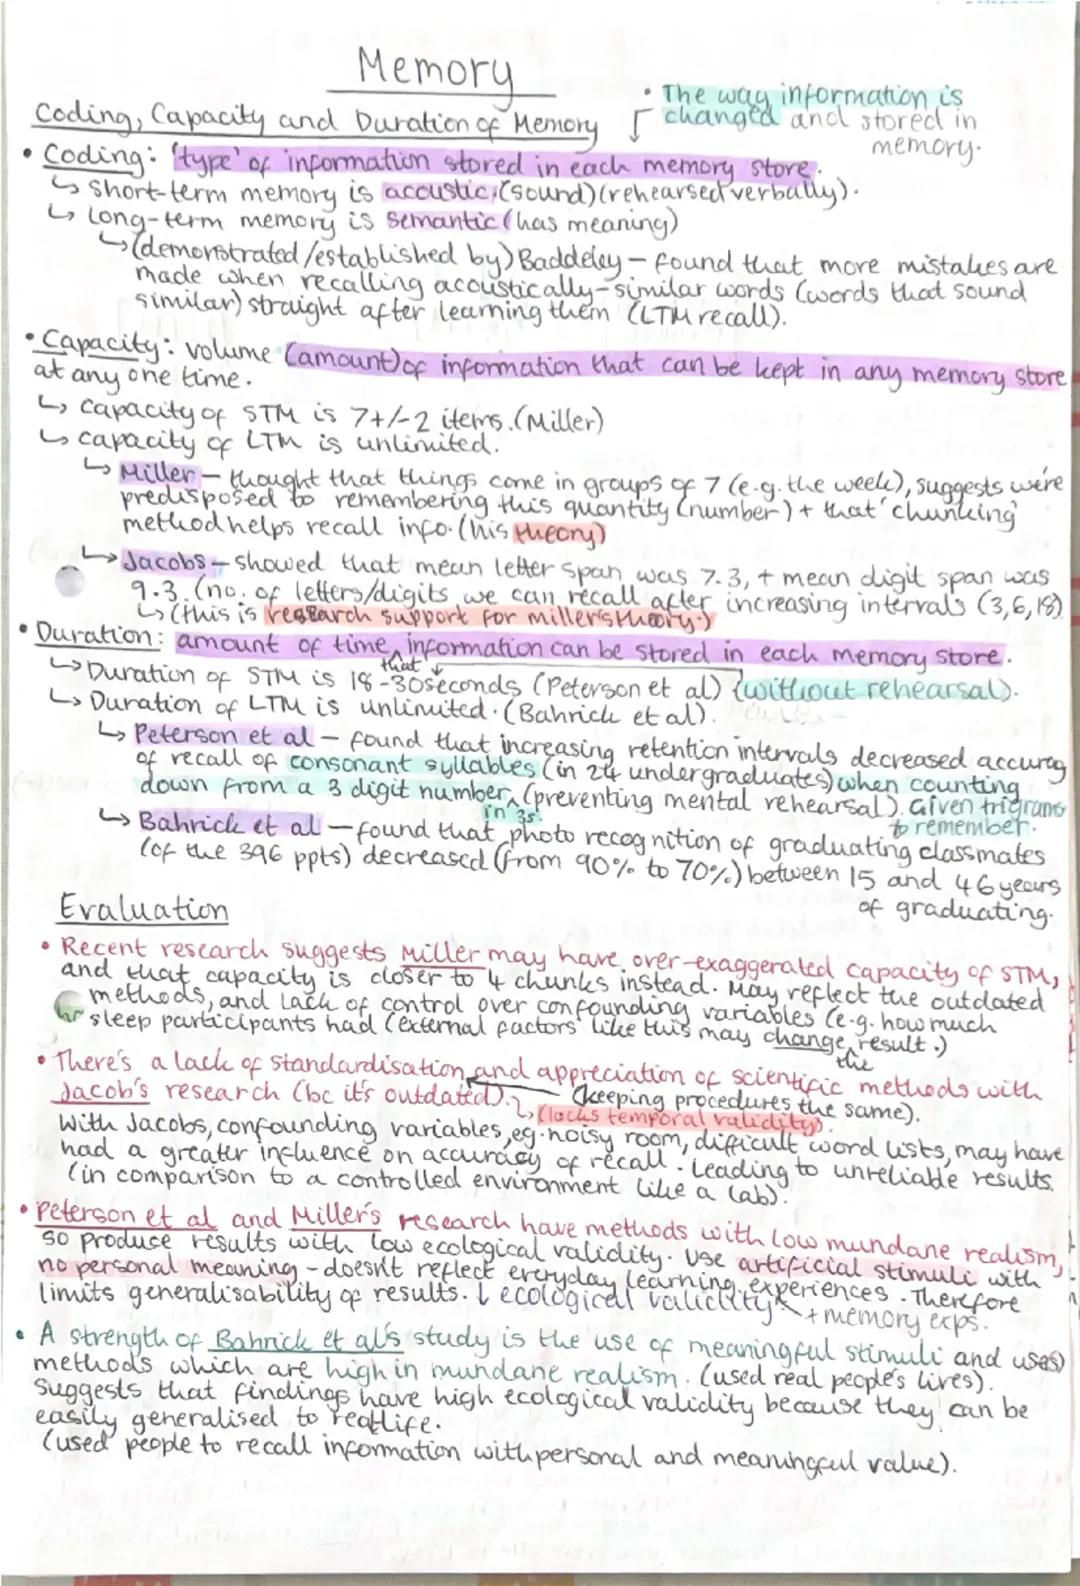 Memory
• The way information is
changed and stored in
memory.
Coding, Capacity and Duration of Memory
• Coding: 'type' of information stored in each memory store.
↳ Short-term memory is acoustic (sound) (rehearsed verbally).
↳ Long-term memory is semantic (has meaning)
↳ (demonstrated/established by) Baddeley - found that more mistakes are
made when recalling acoustically-similar words (words that sound
similar) straight after learning them (LTM recall).
• Capacity: volume (amount) of information that can be kept in any memory store
at any one time.
↳ Capacity of STM is 7+/-2 items. (Miller)
↳ Capacity of LTM is unlimited.
↳ Miller - thought that things come in groups of 7 (e.g. the week), suggests we're
predisposed to remembering this quantity (number) + that 'chunking'
method helps recall info. (his theory)
↳ Jacobs - showed that mean letter span was 7.3, + mean digit span was
9.3. (no. of letters/digits we can recall after increasing intervals (3,6,18)
↳ (this is research support for miller's theory.)
• Duration: amount of time information can be stored in each memory store.
that
↳ Duration of STM is 18-30seconds (Peterson et al) (without rehearsal).
↳ Duration of LTM is unlimited. (Bahrick et al).
↳ Peterson et al - found that increasing retention intervals decreased accuracy
of recall of consonant syllables (in 24 undergraduates) when counting
down from a 3 digit number (preventing mental rehearsal). Given trigrams
in 3s. to remember.
↳ Bahrick et al - found that photo recognition of graduating classmates
(of the 396 ppts) decreased (from 90% to 70%) between 15 and 46 years
of graduating.
Evaluation
• Recent research suggests Miller may have over-exaggerated capacity of STM,
and that capacity is closer to 4 chunks instead. May reflect the outdated
methods, and lack of control over confounding variables (e.g. how much
hr sleep participants had (external factors like this may change result.)
the
• There's a lack of standardisation and appreciation of scientific methods with
Jacob's research (bc it's outdated). (keeping procedures the same).
↳ (lacks temporal validity).
With Jacobs, confounding variables, eg. noisy room, difficult word lists, may have
had a greater influence on accuracy of recall. Leading to unreliable results.
(in comparison to a controlled environment like a lab).
• Peterson et al and Miller's research have methods with low mundane realism,
so produce results with low ecological validity. Use artificial stimuli with
no personal meaning - doesn't reflect everyday learning experiences. Therefore
limits generalisability of results. ↓ ecological validity + memory exps.
• A strength of Bahrick et al's study is the use of meaningful stimuli (and uses)
methods which are high in mundane realism. (used real people's lives).
Suggests that findings have high ecological validity because they can be
easily generalised to real life.
(used people to recall information with personal and meaningful value).